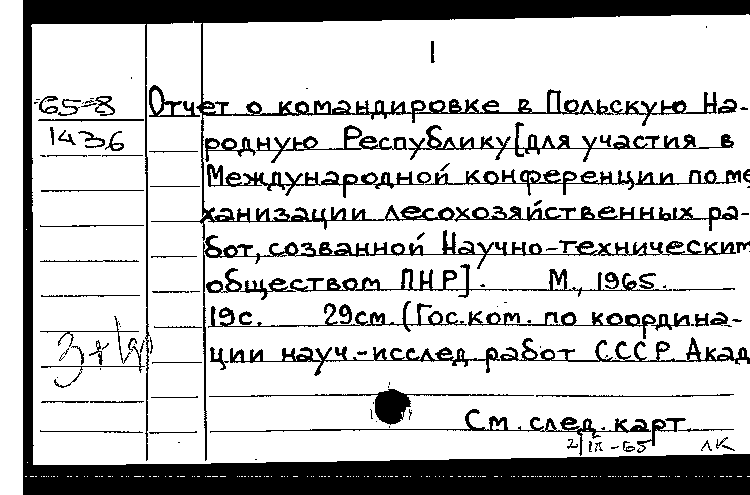 I
65-8 Отчет о командировке в Польскую На-
1436 родную Республику [для участия в
Международной конференции по ме
ханизации лесохозяйственных ра-
бот, созванной Научно-техническим
обществом ПНР]. М., 1965.
19с. 29см. (Гос.ком. по координа-
ции науч.-исслед. работ СССР. Акад
См. след. карт.
2/IX-65 ЛК